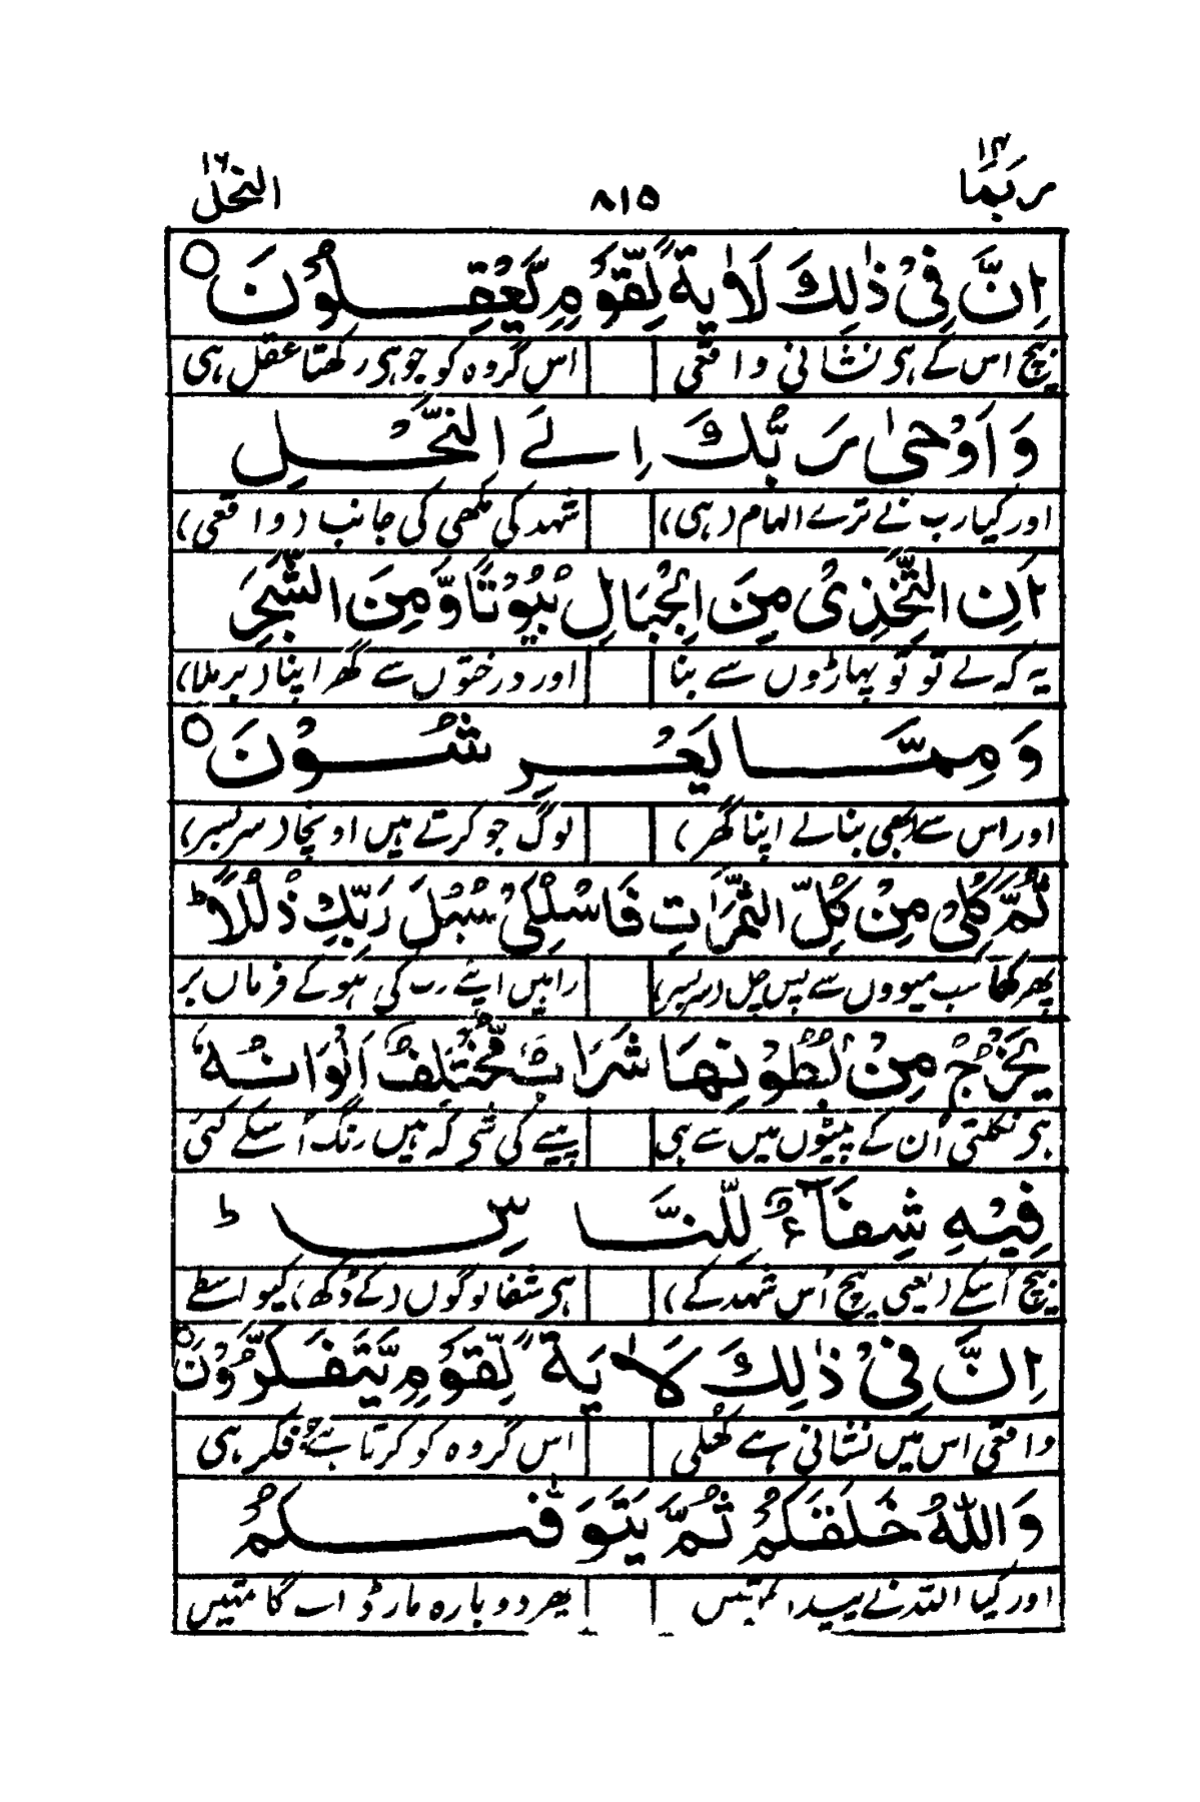 ربما ۱۴ ۸۱۵ النحل ۱۶
اِنَّ فِیْ ذٰلِكَ لَاٰیَةً لِّقَوْمٍ یَّعْقِلُوْنَ ○
بیچ اس کے ہی نشانی واقعی اس گروہ کو جو ہی رکھتا عقل ہی
وَ اَوْحٰی رَبُّكَ اِلَی النَّحْلِ
اور کیا رب نے ترے الہام (ہی) شہد کی مکھی کی جانب (واقعی)
اَنِ اتَّخِذِیْ مِنَ الْجِبَالِ بُیُوْتًا وَّ مِنَ الشَّجَرِ
یہ کہ لے تو تو پہاڑوں سے بنا اور درختوں سے گھر اپنا (برملا)
وَ مِمَّا یَعْرِشُوْنَ ○
اور اس سے بھی بنالے اپنا گھر) لوگ جو کرتے ہیں اونچا (سر بسر)
ثُمَّ كُلِیْ مِنْ كُلِّ الثَّمَرٰتِ فَاسْلُكِیْ سُبُلَ رَبِّكِ ذُلُلًا ؕ
پھر کھا سب میووں سے پس چل (سر بسر) راہیں اپنے رب کی ہو کے فرماں بر
یَخْرُجُ مِنْۢ بُطُوْنِهَا شَرَابٌ مُّخْتَلِفٌ اَلْوَانُهٗ
ہی نکلتی اُن کے پیٹوں میں سے ہی پینے کی شی کہ ہیں رنگ اُسکے کئی
فِیْهِ شِفَآءٌ لِّلنَّاسِ ؕ
بیچ اُسکے (یعنی بیچ اُس شہد کے) ہی شفا لوگوں (کے دکھ) کیواسطے
اِنَّ فِیْ ذٰلِكَ لَاٰیَةً لِّقَوْمٍ یَّتَفَكَّرُوْنَ ○
واقعی اس میں نشانی ہے کھلی اس گروہ کو کرتا ہے جو فکر ہی
وَ اللّٰهُ خَلَقَكُمْ ثُمَّ یَتَوَفّٰىكُمْ
اور کیا اللہ نے پیدا تمہیں پھر دوبارہ مار ڈالے گا تمہیں